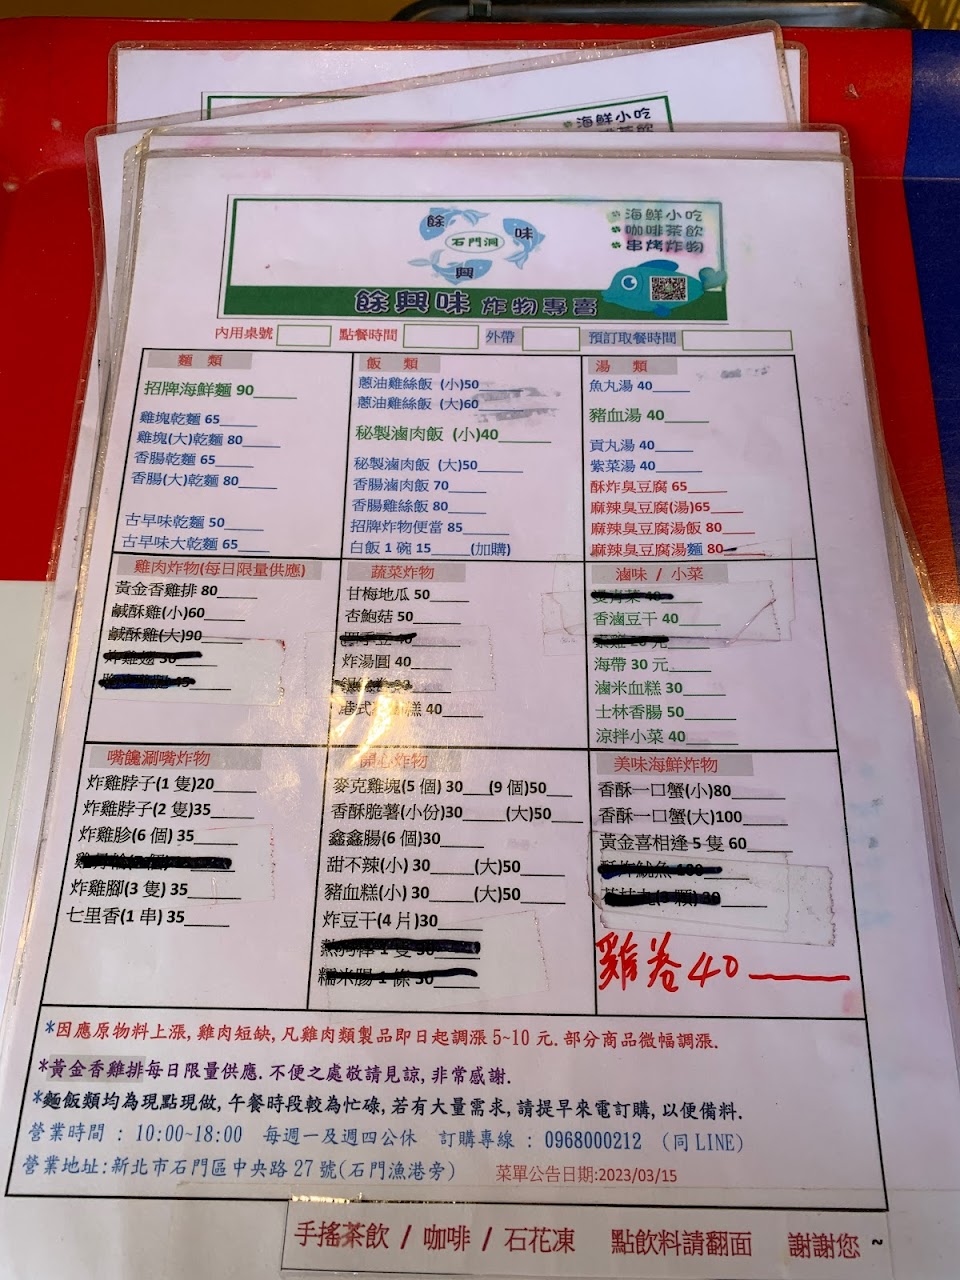 海鮮小吃
餘
味
興
石門洞
海鮮小吃
咖啡茶飲
串烤炸物
餘興味 炸物專賣
內用桌號 點餐時間 外帶 預訂取餐時間
麵 類
招牌海鮮麵 90
雞塊乾麵 65
雞塊(大)乾麵 80
香腸乾麵 65
香腸(大)乾麵 80
古早味乾麵 50
古早味大乾麵 65
飯 類
蔥油雞絲飯 (小)50
蔥油雞絲飯 (大)60
秘製滷肉飯 (小)40
秘製滷肉飯 (大)50
香腸滷肉飯 70
香腸雞絲飯 80
招牌炸物便當 85
白飯 1 碗 15 (加購)
湯 類
魚丸湯 40
豬血湯 40
貢丸湯 40
紫菜湯 40
酥炸臭豆腐 65
麻辣臭豆腐(湯)65
麻辣臭豆腐湯飯 80
麻辣臭豆腐湯麵 80
雞肉炸物(每日限量供應)
黃金香雞排 80
鹹酥雞(小)60
鹹酥雞(大)90
蔬菜炸物
甘梅地瓜 50
杏鮑菇 50
炸湯圓 40
港式 糕 40
滷味 / 小菜
香滷豆干 40
海帶 30 元
滷米血糕 30
士林香腸 50
涼拌小菜 40
嘴饞涮嘴炸物
炸雞脖子(1 隻)20
炸雞脖子(2 隻)35
炸雞胗(6 個) 35
炸雞腳(3 隻) 35
七里香(1 串) 35
開心炸物
麥克雞塊(5 個) 30 (9 個)50
香酥脆薯(小份)30 (大)50
鑫鑫腸(6 個)30
甜不辣(小) 30 (大)50
豬血糕(小) 30 (大)50
炸豆干(4 片)30
熱狗棒 1 隻 30
糯米腸 1 條 30
美味海鮮炸物
香酥一口蟹(小)80
香酥一口蟹(大)100
黃金喜相逢 5 隻 60
雞卷 40
*因應原物料上漲, 雞肉短缺, 凡雞肉類製品即日起調漲 5~10 元. 部分商品微幅調漲.
*黃金香雞排每日限量供應. 不便之處敬請見諒, 非常感謝.
*麵飯類均為現點現做, 午餐時段較為忙碌, 若有大量需求, 請提早來電訂購, 以便備料.
營業時間 : 10:00~18:00 每週一及週四公休 訂購專線 : 0968000212 (同 LINE)
營業地址:新北市石門區中央路 27 號(石門漁港旁) 菜單公告日期:2023/03/15
手搖茶飲 / 咖啡 / 石花凍 點飲料請翻面 謝謝您 ~